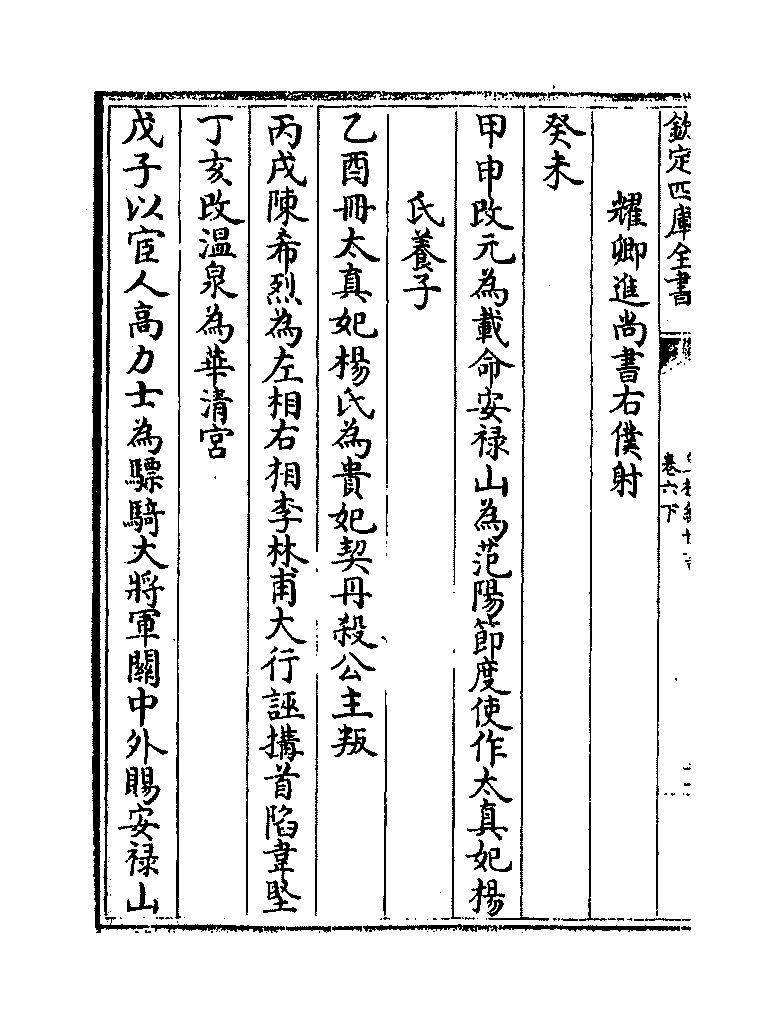 欽定四庫全書
卷六下
耀卿進尚書右僕射
癸未
甲申改元為載命安禄山為范陽節度使作太真妃楊
氏養子
乙酉冊太真妃楊氏為貴妃契丹殺公主叛
丙戌陳希烈為左相右相李林甫大行誣搆首陷韋堅
丁亥改温泉為華清宮
戊子以宦人高力士為驃騎大將軍關中外賜安禄山